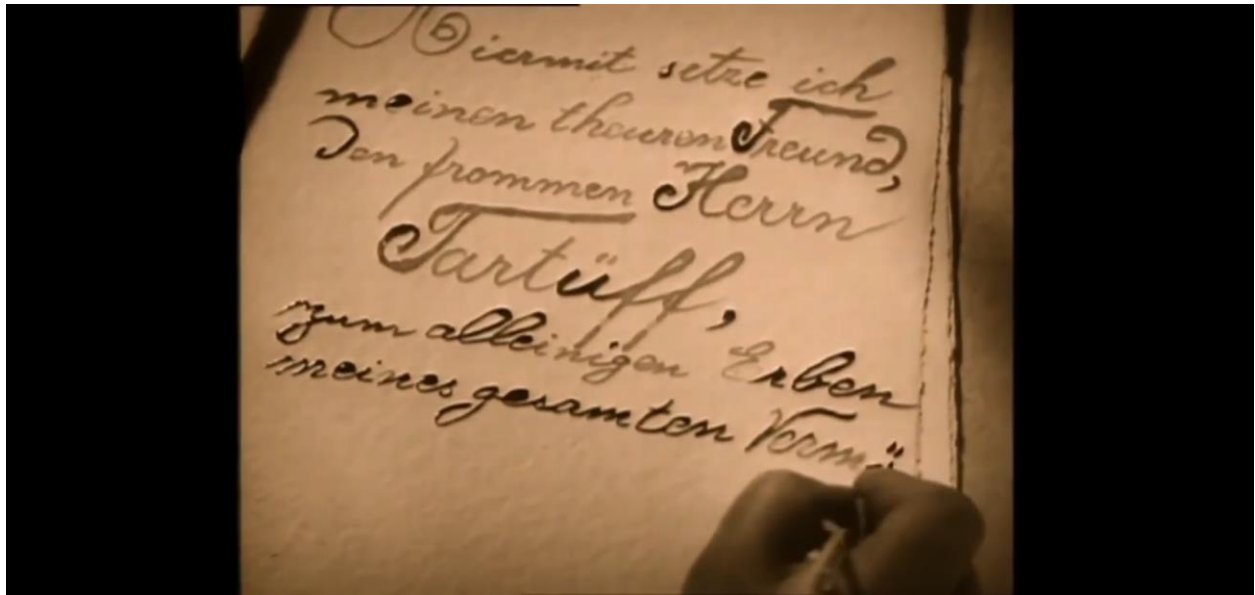 Hiermit setze ich
meinen theuren Freund,
Den frommen Herrn
Tartüff,
zum alleinigen Erben
meines gesamten Vermö